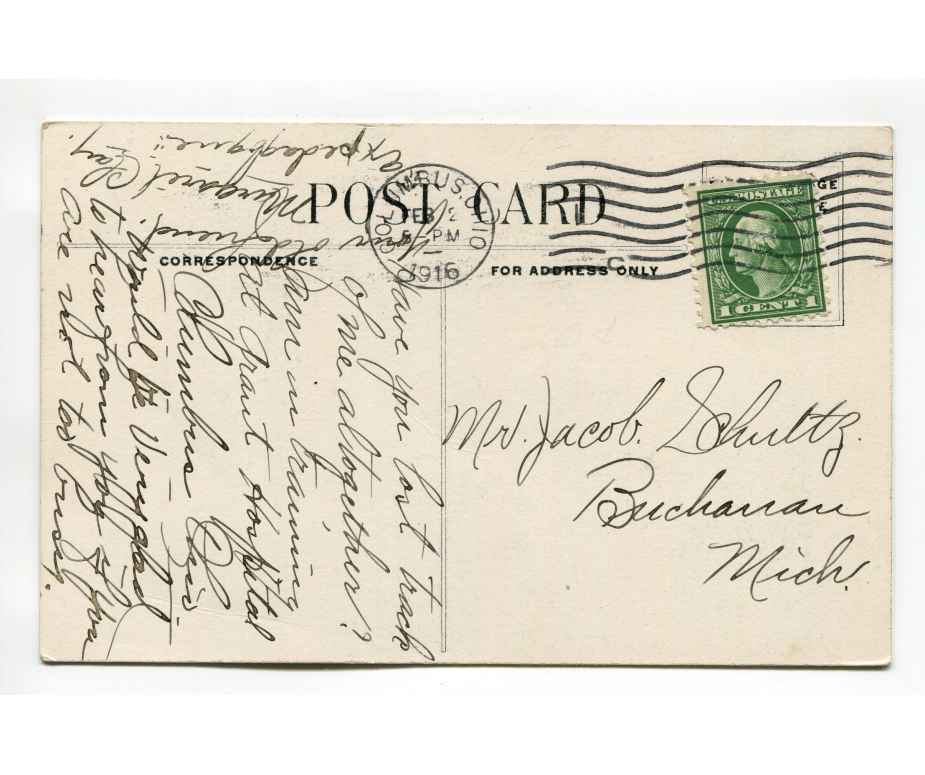 POST CARD
CORRESPONDENCE
FOR ADDRESS ONLY
COLUMBUS, OHIO
FEB 2
5 PM
1916
U.S. POSTAGE
1 CENT 1
Mr. Jacob. Schultz.
Buchanan
Mich.
Have you lost track
of me altogether?
Am in training
at Grant Hospital
Columbus Ohio.
Would be very glad
to hear from you if you
are not too busy.
Your old friend,
Margaret